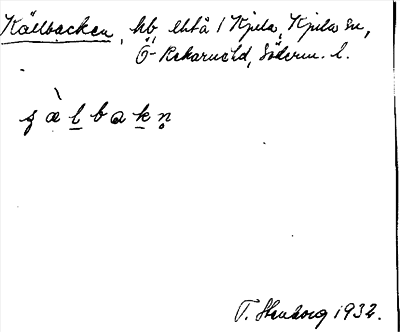 Källbacken, hb, lhtå 1 Kjula, Kjula sn,
Ö-Rekarne hd, Söderm. l.
s æ̀ l b a k n̥
T. Stenborg 1932.